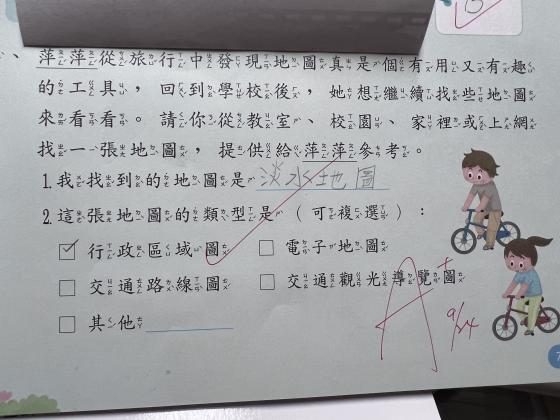 、萍萍從旅行中發現地圖真是個有用又有趣
的工具，回到學校後，她想繼續找些地圖
來看看。請你從教室、校園、家裡或上網
找一張地圖，提供給萍萍參考。
1.我找到的地圖是淡水地圖
2.這張地圖的類型是（可複選）：
☑行政區域圖 □電子地圖
□交通路線圖 □交通觀光導覽圖
□其他
A+
9/24
7